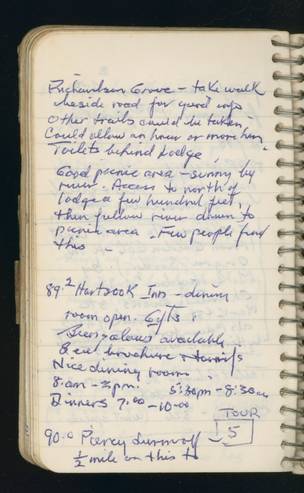 Richardson Grove - take walk
beside road for good
Other trails could be taken
Could allow an hour or more here
Toilets behind Lodge
Good picnic area - sunny by
river. Access to north of
lodge a few hundred feet,
then follow river down to
picnic area. Few people find
this
89.2 Hartsook Inn - dining
room open. Gifts
available
brochure +
Nice dining room
8 am - 3 pm. 5:30 pm - 8:30
Dinners 7.00 - 10.00
TOUR
5
90.0 Piercy turnoff -
1/2 mile on this